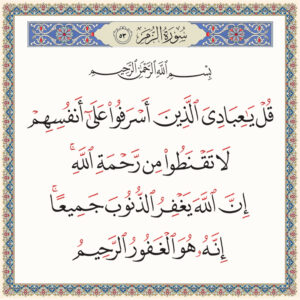 سُورَةُ الزُّمَرِ ٥٣
بِسْمِ اللَّهِ الرَّحْمَٰنِ الرَّحِيمِ
قُلْ يَٰعِبَادِيَ ٱلَّذِينَ أَسْرَفُوا۟ عَلَىٰٓ أَنفُسِهِمْ
لَا تَقْنَطُوا۟ مِن رَّحْمَةِ ٱللَّهِ ۚ
إِنَّ ٱللَّهَ يَغْفِرُ ٱلذُّنُوبَ جَمِيعًا ۚ
إِنَّهُۥ هُوَ ٱلْغَفُورُ ٱلرَّحِيمُ